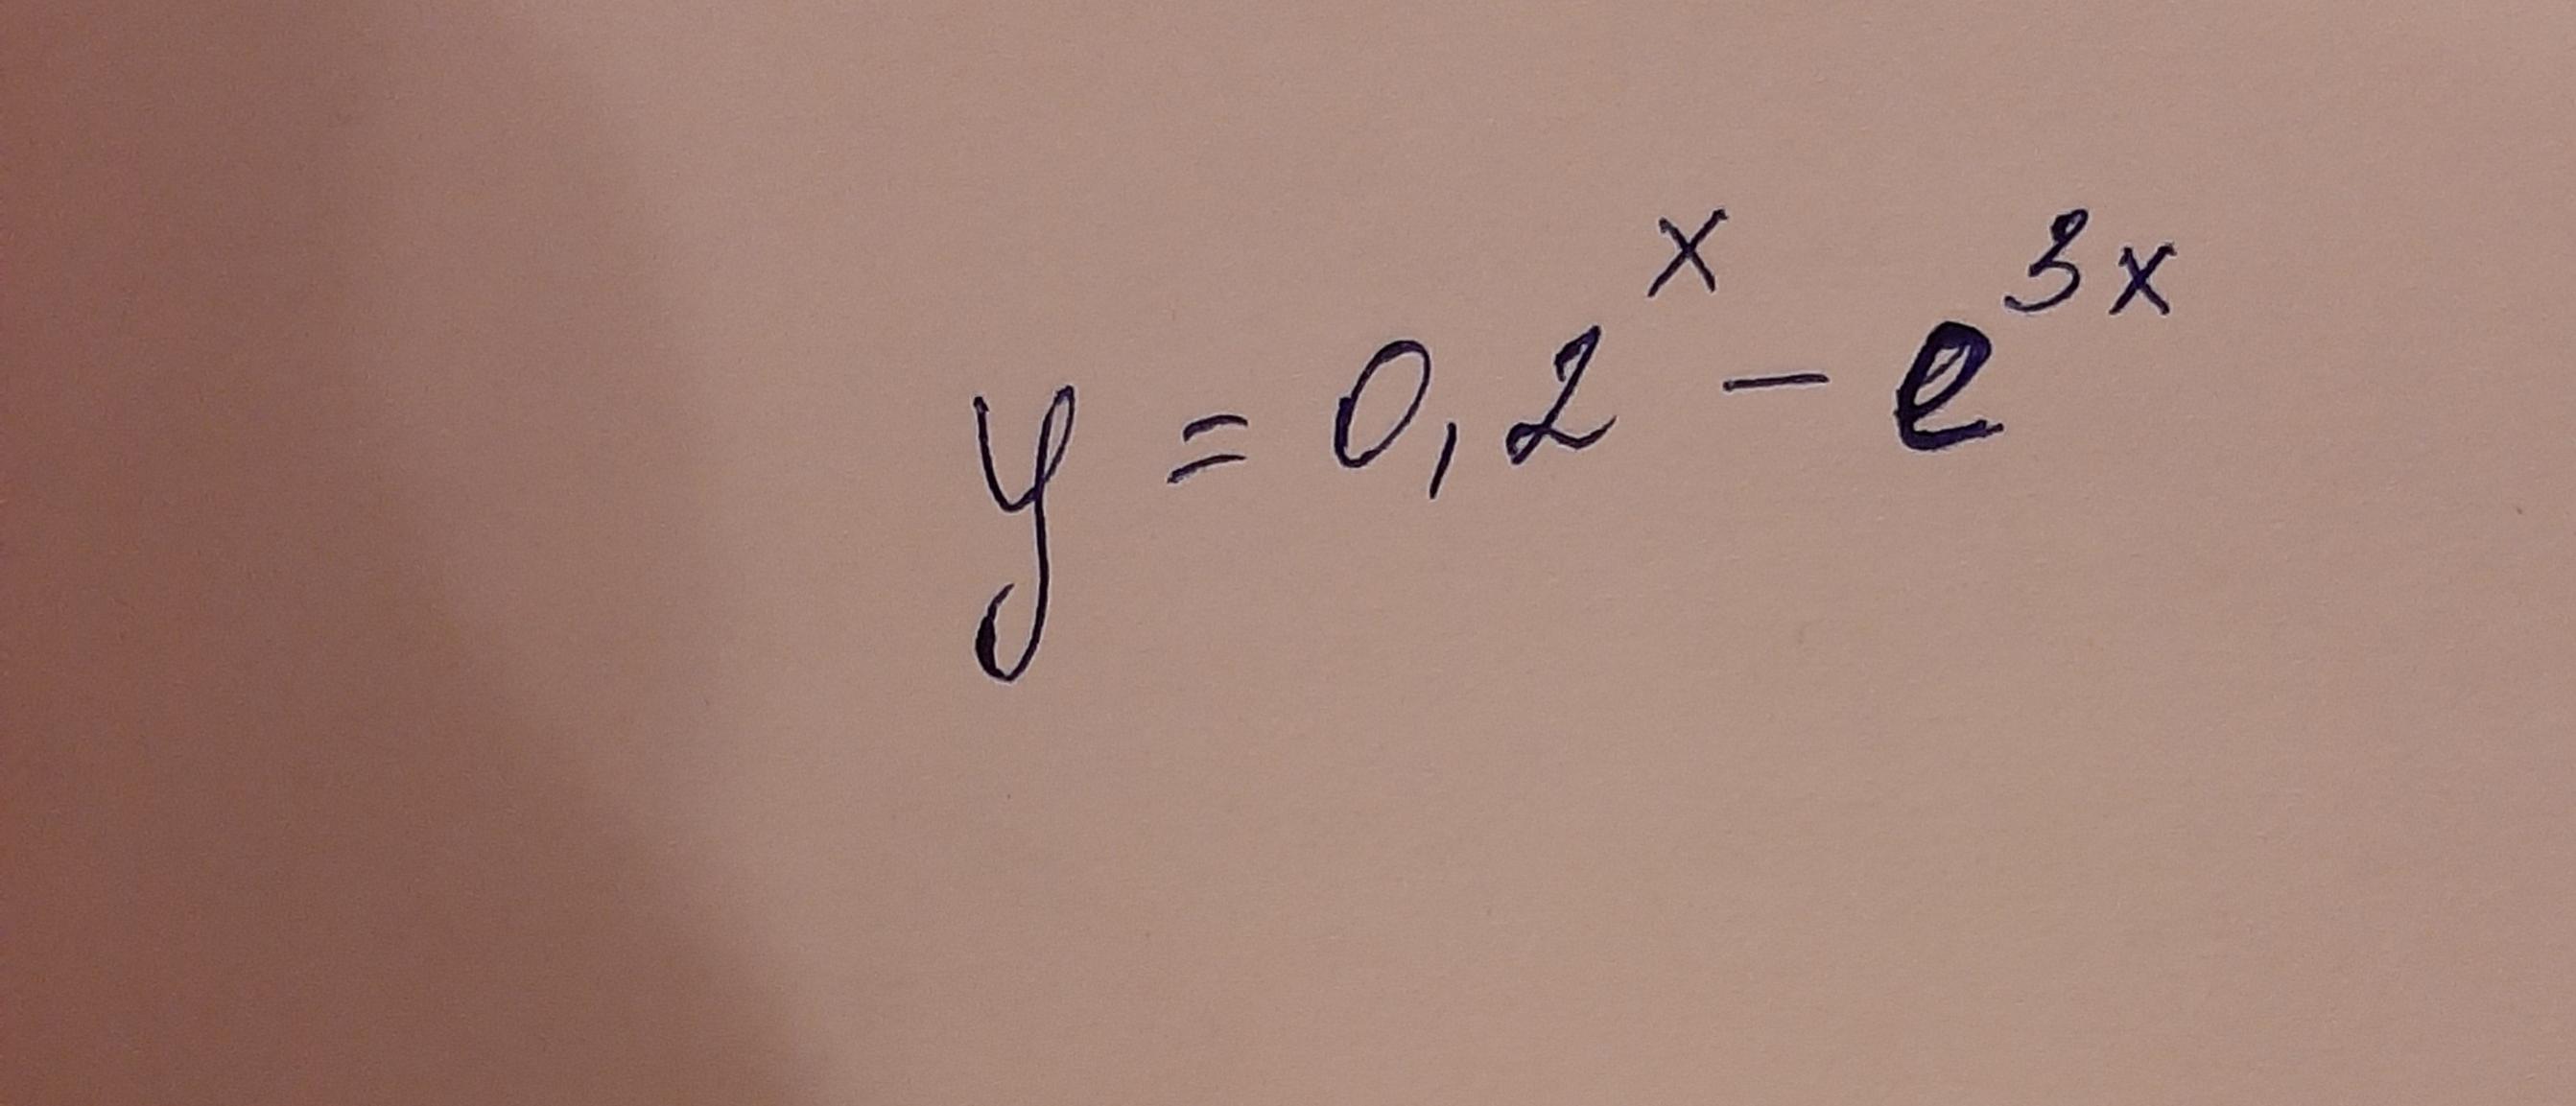 y = 0,2^x - e^3x